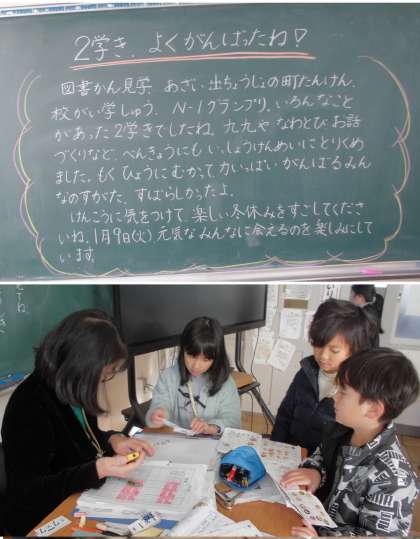 2学き、よくがんばったね!
図書かん見学、あざい出ちょうじょの町たんけん、
校がい学しゅう、N-1グランプリ、いろんなこと
があった2学きでしたね。九九やなわとび、お話
づくりなど、べんきょうにもいっしょうけんめいにとりくめ
ました。もくひょうにむかって力いっぱいがんばるみん
なのすがた、すばらしかったよ。
けんこうに気をつけて、楽しい冬休みをすごしてくださ
いね。1月9日(火)元気なみんなに会えるのを楽しみにして
います。